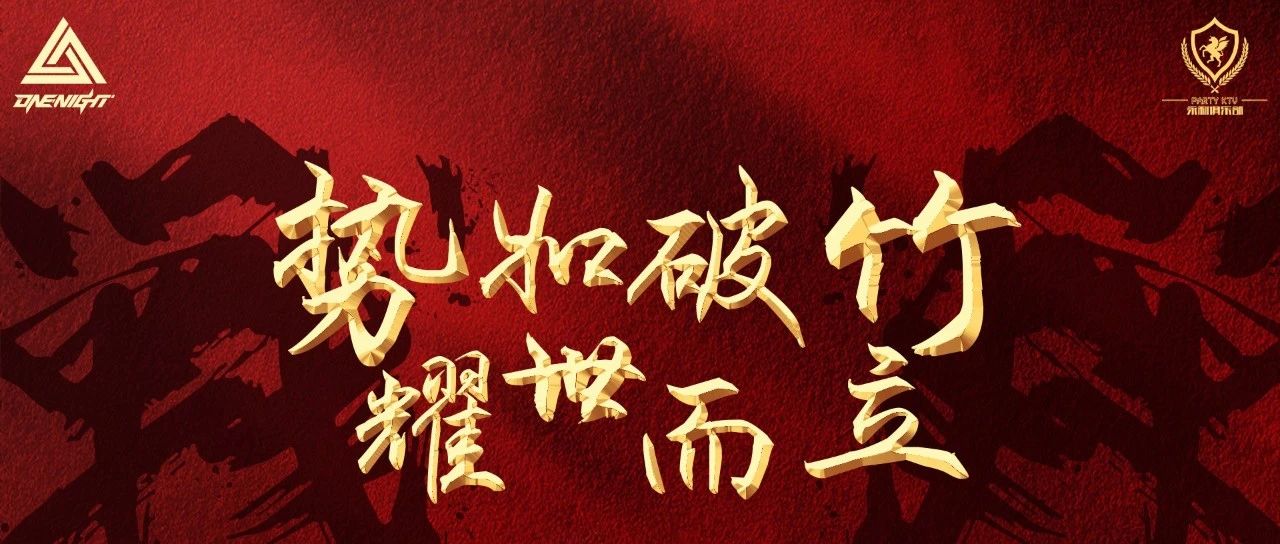 ONE NIGHT
PARTY KTV
乐利俱乐部
势如破竹
耀世而立